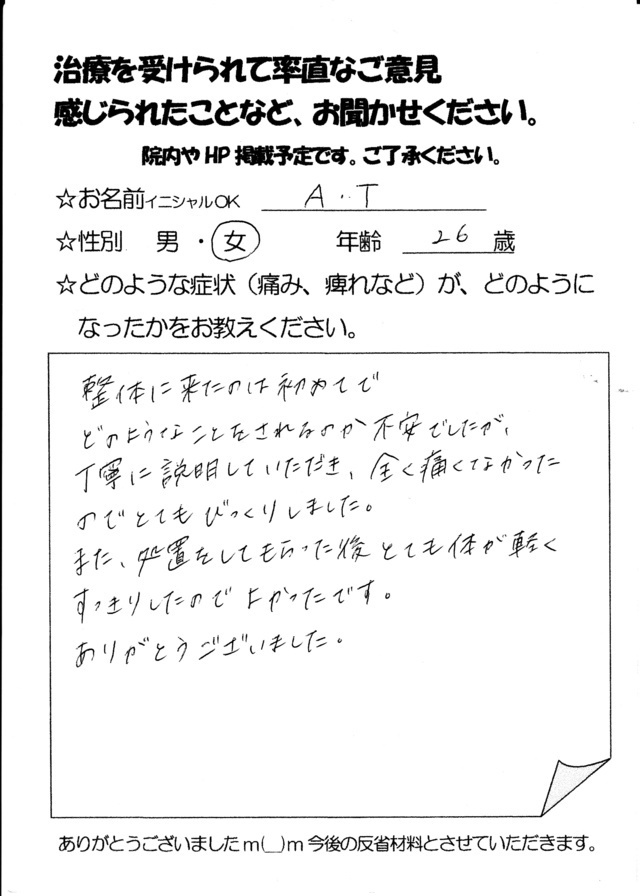 治療を受けられて率直なご意見
感じられたことなど、お聞かせください。
院内や HP 掲載予定です。ご了承ください。
☆お名前イニシャルOK A.T
☆性別 男・女 年齢 26 歳
☆どのような症状（痛み、痺れなど）が、どのように
なったかをお教えください。
整体に来たのは初めてで
どのようなことをされるのか不安でしたが、
丁寧に説明していただき、全く痛くてなかった
のでとてもびっくりしました。
また、処置をしてもらった後とても体が軽く
すっきりしたのでよかったです。
ありがとうございました。
ありがとうございましたm(__)m今後の反省材料とさせていただきます。